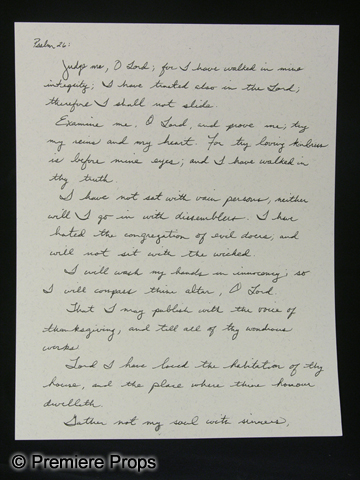 Psalm 26:
Judge me, O Lord; for I have walked in mine
integrity; I have trusted also in the Lord;
therefore I shall not slide.
Examine me, O Lord, and prove me; try
my reins and my heart. For thy loving kindness
is before mine eyes; and I have walked in
thy truth.
I have not sat with vain persons, neither
will I go in with dissemblers. I have
hated the congregation of evil doers; and
will not sit with the wicked.
I will wash my hands in innocency; so
I will compass thine altar, O Lord.
That I may publish with the voice of
thanksgiving, and tell all of thy wondrous
works.
Lord I have loved the habitation of thy
house, and the place where thine honour
dwelleth.
Gather not my soul with sinners,
© Premiere Props